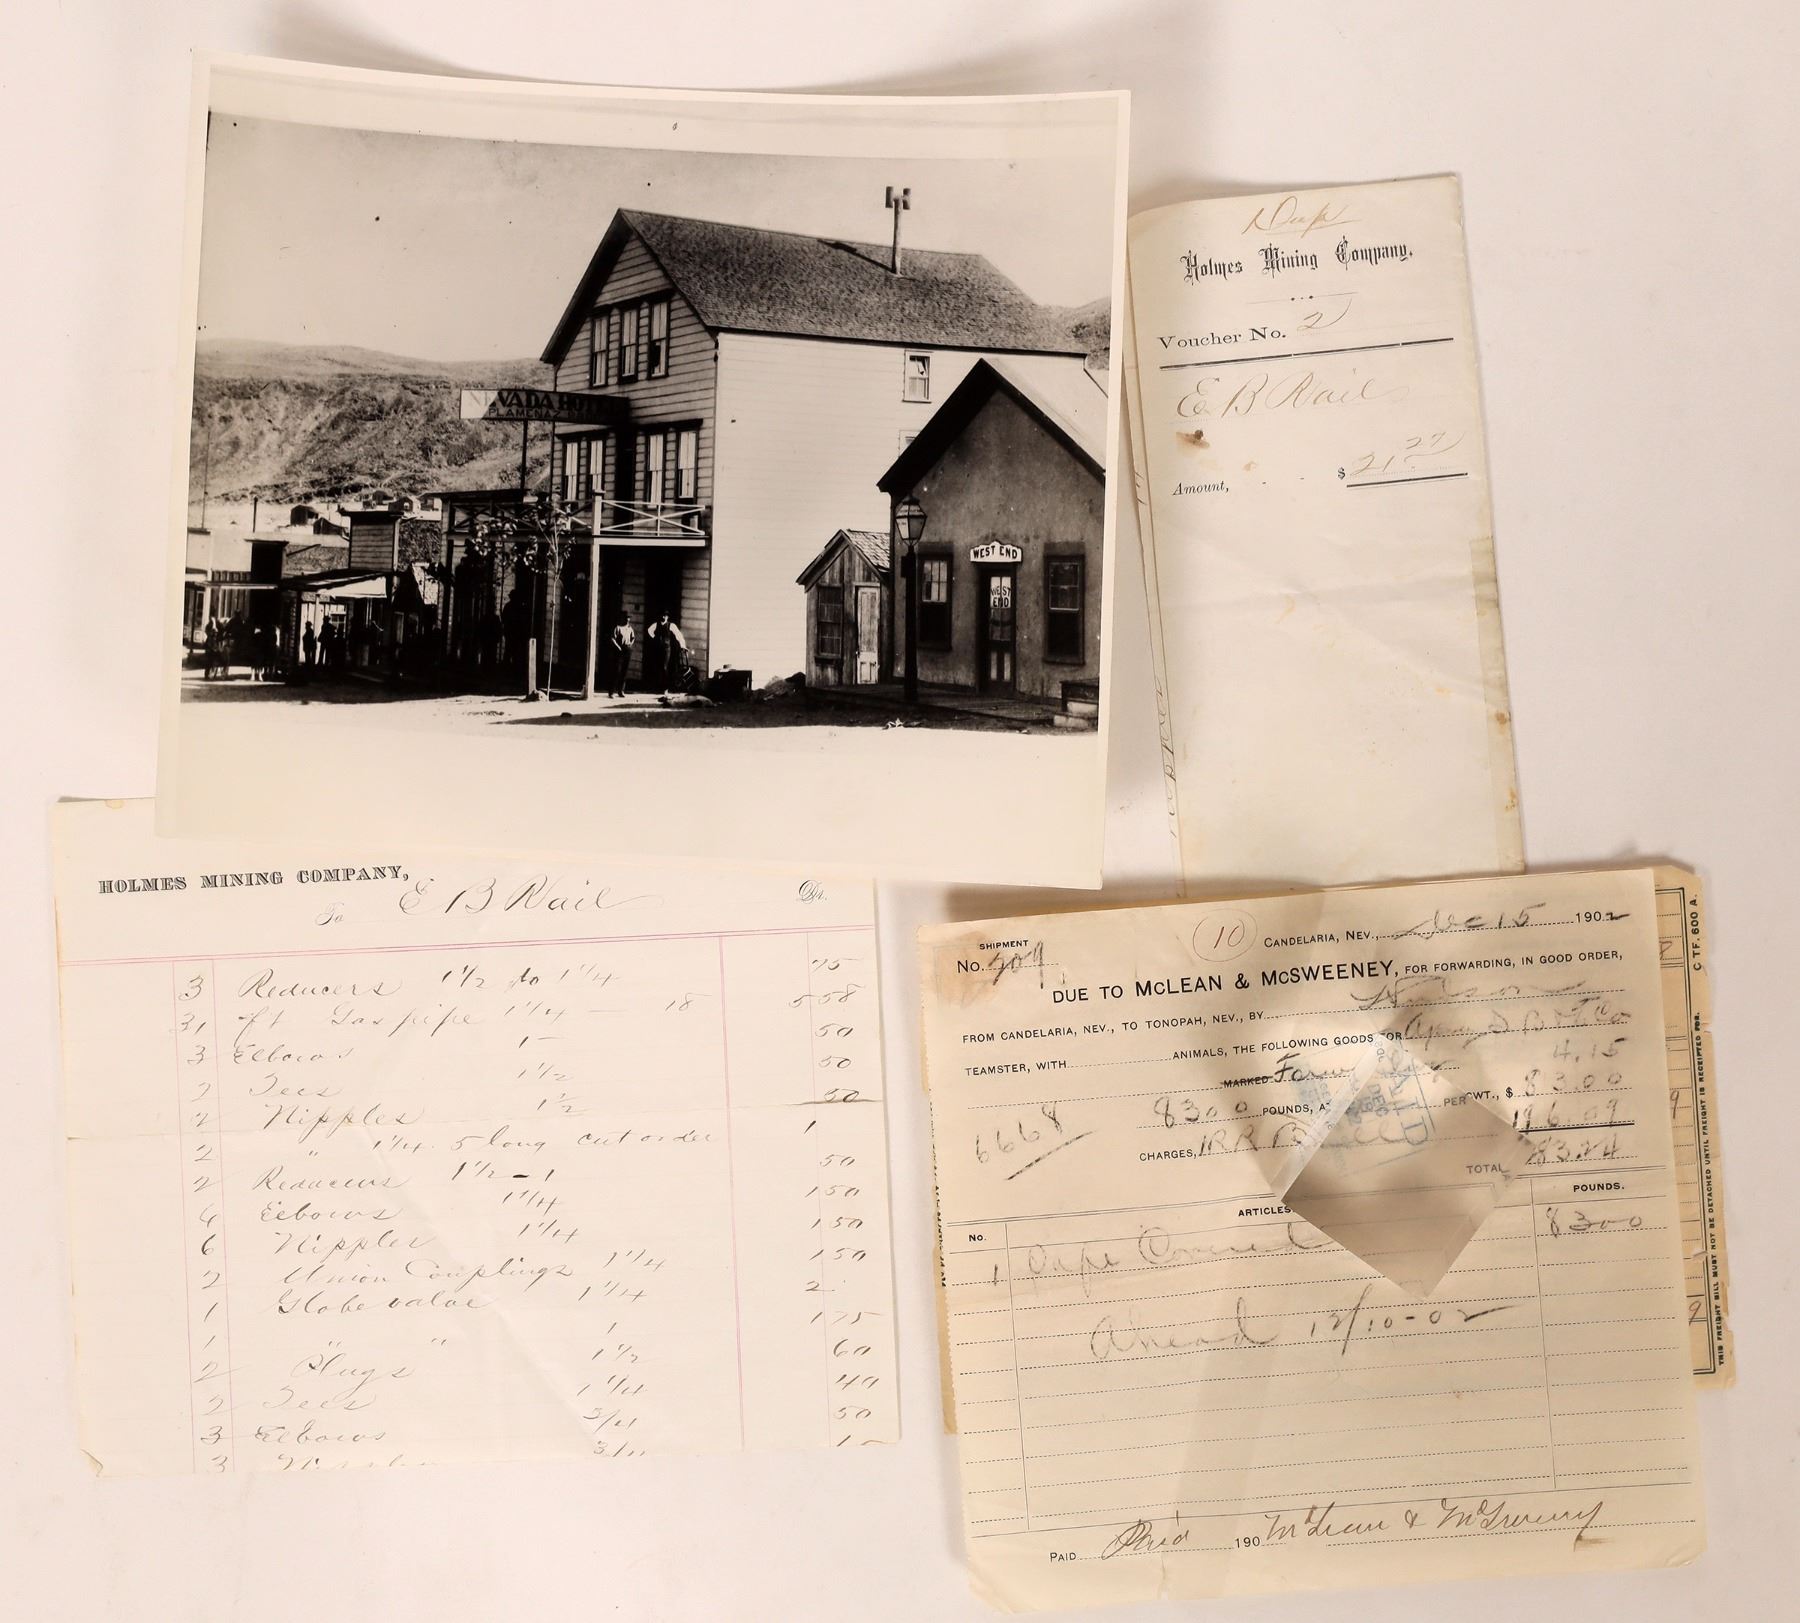 NEVADA HOTEL
PLAMENAZ
WEST END
WEST
END
Dup
Holmes Mining Company.
Voucher No. 2
E B Rail
Amount, $ 21.27
HOLMES MINING COMPANY,
To E B Rail Dr.
3 Reducers 1 1/2 to 1 1/4 75
31 ft Gas pipe 1 1/4 — 18 5 58
3 Elbows 1 — 50
2 Tees 1 1/2 50
2 Nipples 1 1/2 50
2 " 1 1/4 . 5 long cut order 1
2 Reducers 1 1/2 - 1 50
6 Elbows 1 1/4 1 50
6 Nipples 1 1/4 1 50
2 Union Couplings 1 1/4 1 50
1 Globe valve 1 1/4 2
1 " " 1 1 75
2 Plugs 1 1/2 60
2 Tees 1 1/4 40
3 Elbows 3/4 50
3
SHIPMENT
No. 209
10
CANDELARIA, NEV., Dec 15 1902
DUE TO MCLEAN & MCSWEENEY, FOR FORWARDING, IN GOOD ORDER,
FROM CANDELARIA, NEV., TO TONOPAH, NEV., BY Hudson
TEAMSTER, WITH ANIMALS, THE FOLLOWING GOODS FOR
MARKED 4.15
6668
8300 POUNDS, AT PER CWT., $ 83.00
CHARGES, R R 196.09
TOTAL
PAID
DEC
No. ARTICLES POUNDS.
1 8300
Ahead 12/10-02
PAID Paid 190 McLean & McSweeney
C TF. 600 A.
THIS FREIGHT BILL MUST NOT BE DETACHED UNTIL FREIGHT IS RECEIPTED FOR.